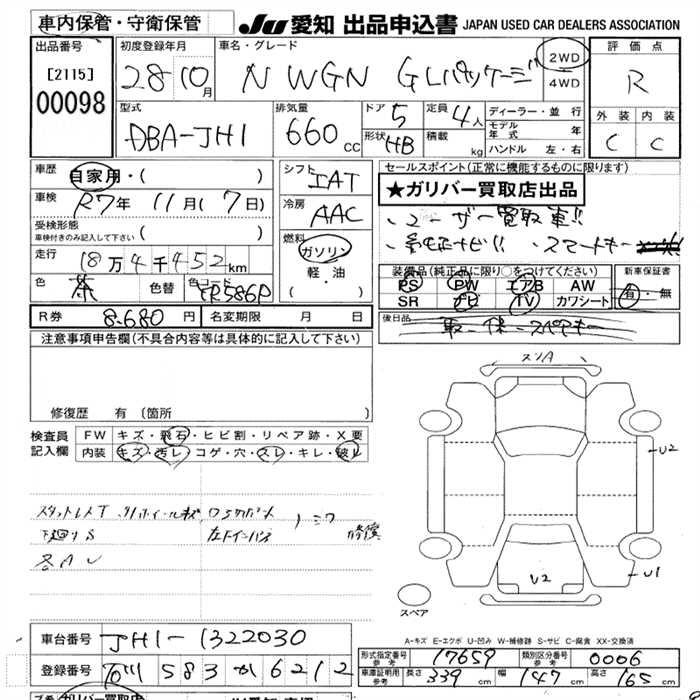 車内保管・守衛保管
JU 愛知 出品申込書 JAPAN USED CAR DEALERS ASSOCIATION
出品番号
[2115]
00098
初度登録年月
28 10月
車名・グレード
N WGN GLパッケージ
2WD
4WD
評価点
R
型式
DBA-JH1
排気量
660 CC
ドア
5
形状
HB
定員
4人
積載
kg
ディーラー・並行
モデル年式 年
ハンドル 左・右
外装 内装
C C
車歴 自家用・( )
車検 R7年 11月(7日)
受検形態
車検付きのみ記入して下さい ( )
走行 18万4千452km
色 茶 色替 色コード YR586P
シフト
IAT
冷房
AAC
燃料
ガソリン
軽・油
( )
セールスポイント(正常に機能するものに限ります)
★ガリバー買取店出品
・ユーザー買取車!!
ナビ!! ・スマートキー
装備品(純正品に限り○をつけてください)
PS PW エアB AW
SR ナビ TV カワシート
新車保証書
有・無
後日品 取・保・スペアキー
R券 8,680円 名変期限 月 日
注意事項申告欄(不具合内容等は具体的に記入して下さい)
修復歴 有 (箇所 )
検査員
記入欄
FW キズ・飛石・ヒビ割・リペア跡・X要
内装 キズ・汚レ・コゲ・穴・スレ・キレ・破レ
各AU
スリA
U2
U2
U1
スペア
A-キズ E-エクボ U-凹み W-補修跡 S-サビ C-腐食 XX-交換済
車台番号 JH1-1322030
登録番号 石川 583 か 6212
形式指定番号 参考 17659 類別区分番号 参考 0006
車庫証明用 参考 長さ 339 cm 幅 147 cm 高さ 165 cm
ガリバー買取店